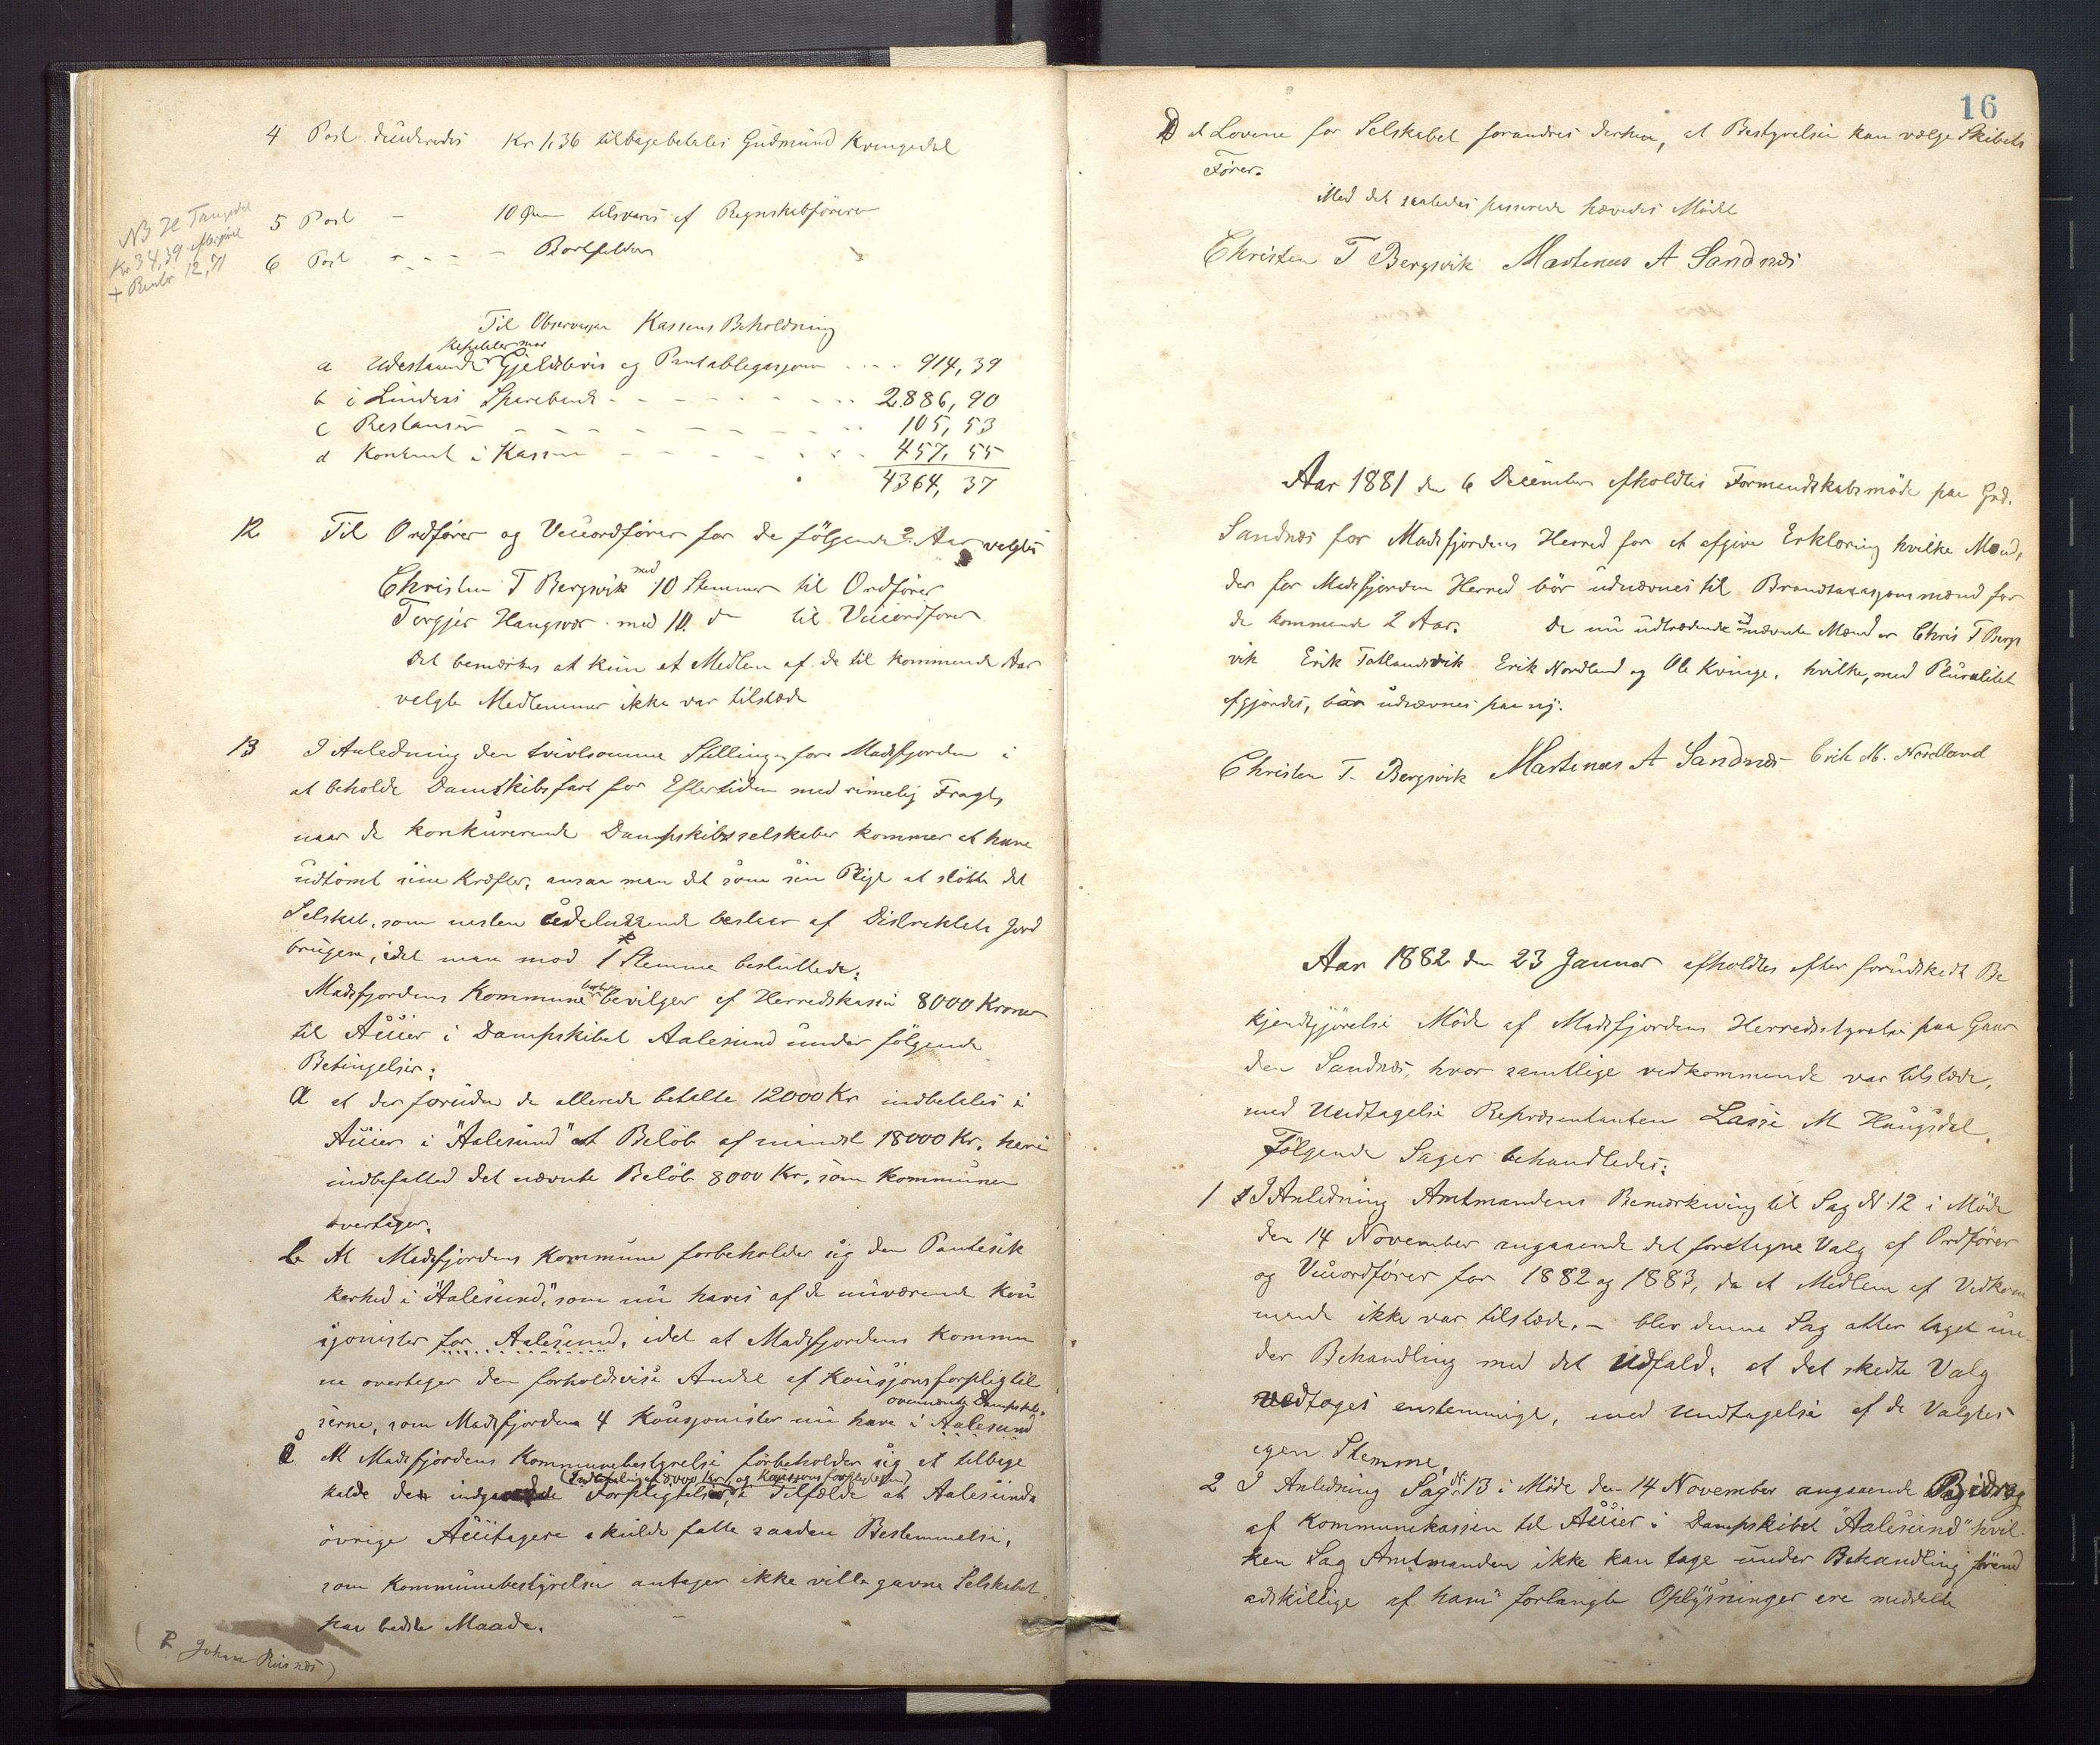 4 Post decideredes Kr 1,36 tilbagebetales Gudmund Kvingedal
NB H Tangedal
Kr 34,39 eftergivet
+ Renter 12,71
5 Post - 10 Øre tilsvares af Regnskabsføreren
6 Post - - - - Bortfalder
Til Observasjon Kassens Beholdning
a Udestaaende Gjeldsbevis og Pantobligasjoner .... 914,39
b i Lindaas Sparebank - - - - - - - - 2886,90
c Restanser - - - - - - - - 105,53
d Kontant i Kassen - - - - - - - 457,55
4364,37
12 Til Ordfører og Viceordfører for de følgende 2 Aar valgtes
Christen T Bergsvik med 10 Stemmer til Ordfører
Torgjer Haugsvær med 10 do til Viceordfører
Det bemærkes at kun et Medlem af de til kommende Aar
valgte Medlemmer ikke var tilstæde
13 I Anledning den tvivlsomme Stilling for Masfjorden i
at beholde Damskibsfart for Eftertiden med rimelig Fragt,
naar de konkurerende Dampskibsselskaber kommer at have
udtømt sine Kræfter, ansaa man det som sin Pligt at støtte det
Selskab, som nesten udelukkende bestaar af Distriktets Jord
brugere, idet man mod 1 Stemme besluttede:
Masfjordens Kommune bevilger af Herredskassen 8000 Kroner
til Akcier i Dampskibet Aalesund under følgende
Betingelser:
a at der foruden de allerede betalte 12000 Kr indbetales i
Akcier i "Aalesund" et Beløb af mindst 18000 Kr. heri
indbefatted det nævnte Beløb 8000 Kr. som Kommunen
overtager.
b At Masfjordens Kommune forbeholder sig den Pantesik
kerhed i "Aalesund," som nu haves af de nuværende Kau
sjonister for Aalesund, idet at Masfjordens Kommu
ne overtager den forholdsvise Andel af Kausjonsforpligtel
ovennævnte Dampskib
serne, som Masfjordens 4 Kausjonister nu have i Aalesund
c At Masfjordens Kommunebestyrelse forbeholder sig at tilbage
(Indbetaling af 8000 Kr, og Kausjonsforpligtelsen)
kalde den indgaaede Forpligtelse, i Tilfælde at Aalesunds
øvrige Akcietagere skulde fatte saadan Bestemmelse,
som Kommunebestyrelsen antager ikke ville gavne Selskabet
paa bedste Maade.
(P. Johan Risnæs)
16
D at Lovene for Selskabet forandres derhen, at Bestyrelsen kan vælge Skibets
Fører.
Med det saaledes passerede hævedes Mødet
Christen T Bergsvik Martenus A Sandnæs
Aar 1881 den 6 December afholdtes Formendskabsmøde paa Grd.
Sandnæs for Masfjordens Herred for at afgive Erklæring hvilke Mænd,
der for Masfjorden Herred bør udnævnes til Brandtaxasjonsmænd for
de kommende 2 Aar. De nu udtrædende udnævnte Mænd er Chris T Bergs
vik Erik Tatlandsvik Erik Nordland og Ole Kvinge, hvilke, med Pluralitet
afgjordes, bør udnævnes paa ny.
Christen T. Bergsvik Martenus A Sandnæs Erik M. Nordland
Aar 1882 den 23 Januar afholdtes efter forudskedt Be
kjendtgjørelse Møde af Masfjordens Herredsstyrelse paa Gaar
den Sandnæs, hvor samtlige vedkommende var tilstæde,
med Undtagelse Repræsentanten Lasse M Haugsdal.
Følgende Sager behandledes:
1 I Anledning Amtmandens Bemærkning til Sag N. 12 i Møde
den 14 November angaaende det foretagne Valg af Ordfører
og Viceordfører for 1882 og 1883, da et Medlem af Vedkom
mende ikke var tilstæde. - blev denne Sag atter taget un
der Behandling med det Udfald, at det skedte Valg
vedtages enstemmigt, med Undtagelse af de Valgtes
egen Stemme.
2 I Anledning Sag N. 13 i Møde den 14 November angaaende Bidrag
af Kommunekassen til Akcier i Dampskibet "Aalesund" hvil-
ken Sag Amtmanden ikke kan tage under Behandling førend
adskillige af ham forlangte Oplysninger ere meddelte